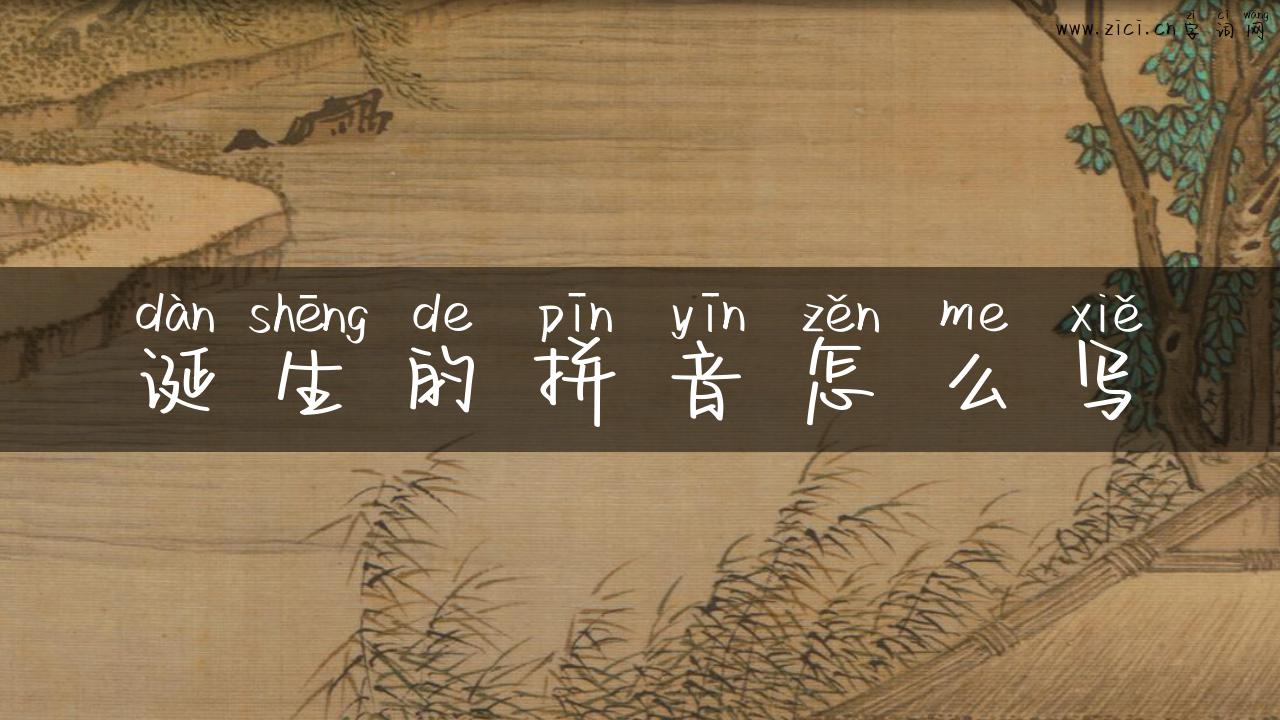 zì cí wǎng
www.zici.cn字词网
dàn shēng de pīn yīn zěn me xiě
诞生的拼音怎么写